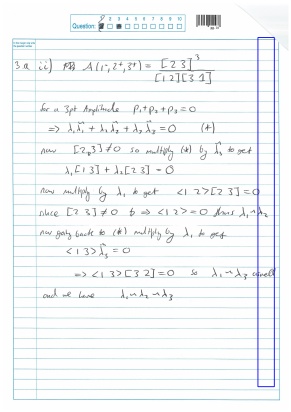 Question: 1 2 3 4 5 6 7 8 9 10
3 a ii) A(1⁻, 2⁺, 3⁺) = [2 3]³ / [1 2][3 1]
for a 3pt Amplitude p₁+p₂+p₃=0
⇒ λ₁λ̃₁ + λ₂λ̃₂ + λ₃λ̃₃ = 0 (*)
now [2,3] ≠0 so multiply (*) by λ̃₃ to get
λ₁[1 3] + λ₂[2 3] = 0
now multiply by λ₁ to get <1 2>[2 3] = 0
since [2 3] ≠ 0 ⇒ <1 2> = 0 thus λ₁~λ₂
now going back to (*) multiply by λ₁ to get
<1 3>λ̃₃ = 0
⇒ <1 3>[3 2] = 0 so λ₁ ~ λ₃ as well
and we have λ₁~λ₂~λ₃